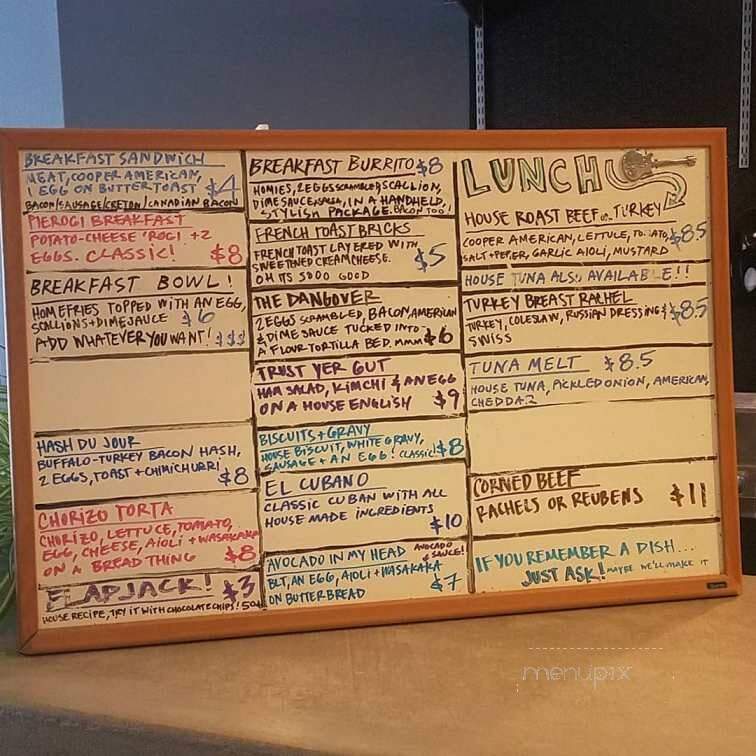 BREAKFAST SANDWICH
MEAT, COOPER AMERICAN,
1 EGG ON BUTTER TOAST $4
BACON/SAUSAGE/CRETON/CANADIAN BACON
PIEROGI BREAKFAST
POTATO-CHEESE 'ROGI +2
EGGS. CLASSIC! $8
BREAKFAST BOWL!
HOMEFRIES TOPPED WITH AN EGG,
SCALLIONS+DIMESAUCE $6
ADD WHATEVER YOU WANT! $$$
HASH DU JOUR
BUFFALO-TURKEY BACON HASH,
2 EGGS, TOAST + CHIMICHURRI $8
CHORIZO TORTA
CHORIZO, LETTUCE, TOMATO,
EGG, CHEESE, AIOLI + WASAKAKA
ON A BREAD THING $8
FLAPJACK! $3
HOUSE RECIPE, TRY IT WITH CHOCOLATE CHIPS! 50¢
BREAKFAST BURRITO $8
HOMIES, 2 EGGS SCRAMBLED, SCALLION,
DIME SAUCE, SALSA, IN A HANDHELD,
STYLISH PACKAGE. BACON TOO!
FRENCH TOAST BRICKS
FRENCH TOAST LAYERED WITH
SWEETENED CREAMCHEESE. $5
OH ITS SOOO GOOD
THE DANGOVER
2 EGGS SCRAMBLED, BACON, AMERICAN
& DIME SAUCE TUCKED INTO
A FLOUR TORTILLA BED. MMM $6
TRUST YER GUT
HAM SALAD, KIMCHI & AN EGG
ON A HOUSE ENGLISH $9
BISCUITS+GRAVY
HOUSE BISCUIT, WHITE GRAVY,
SAUSAGE + AN EGG! CLASSIC! $8
EL CUBANO
CLASSIC CUBAN WITH ALL
HOUSE MADE INGREDIENTS
$10
AVOCADO IN MY HEAD AVOCADO & SAUCE!
BLT, AN EGG, AIOLI + WASAKAKA
ON BUTTERBREAD $7
LUNCH
HOUSE ROAST BEEF OR TURKEY
COOPER AMERICAN, LETTUCE, TOMATO, $8.5
SALT+PEPPER, GARLIC AIOLI, MUSTARD
HOUSE TUNA ALSO AVAILABLE!!
TURKEY BREAST RACHEL
TURKEY, COLESLAW, RUSSIAN DRESSING & $8.5
SWISS
TUNA MELT $8.5
HOUSE TUNA, PICKLED ONION, AMERICAN,
CHEDDAR
CORNED BEEF
RACHELS OR REUBENS $11
IF YOU REMEMBER A DISH...
JUST ASK! MAYBE WE'LL MAKE IT
menupix